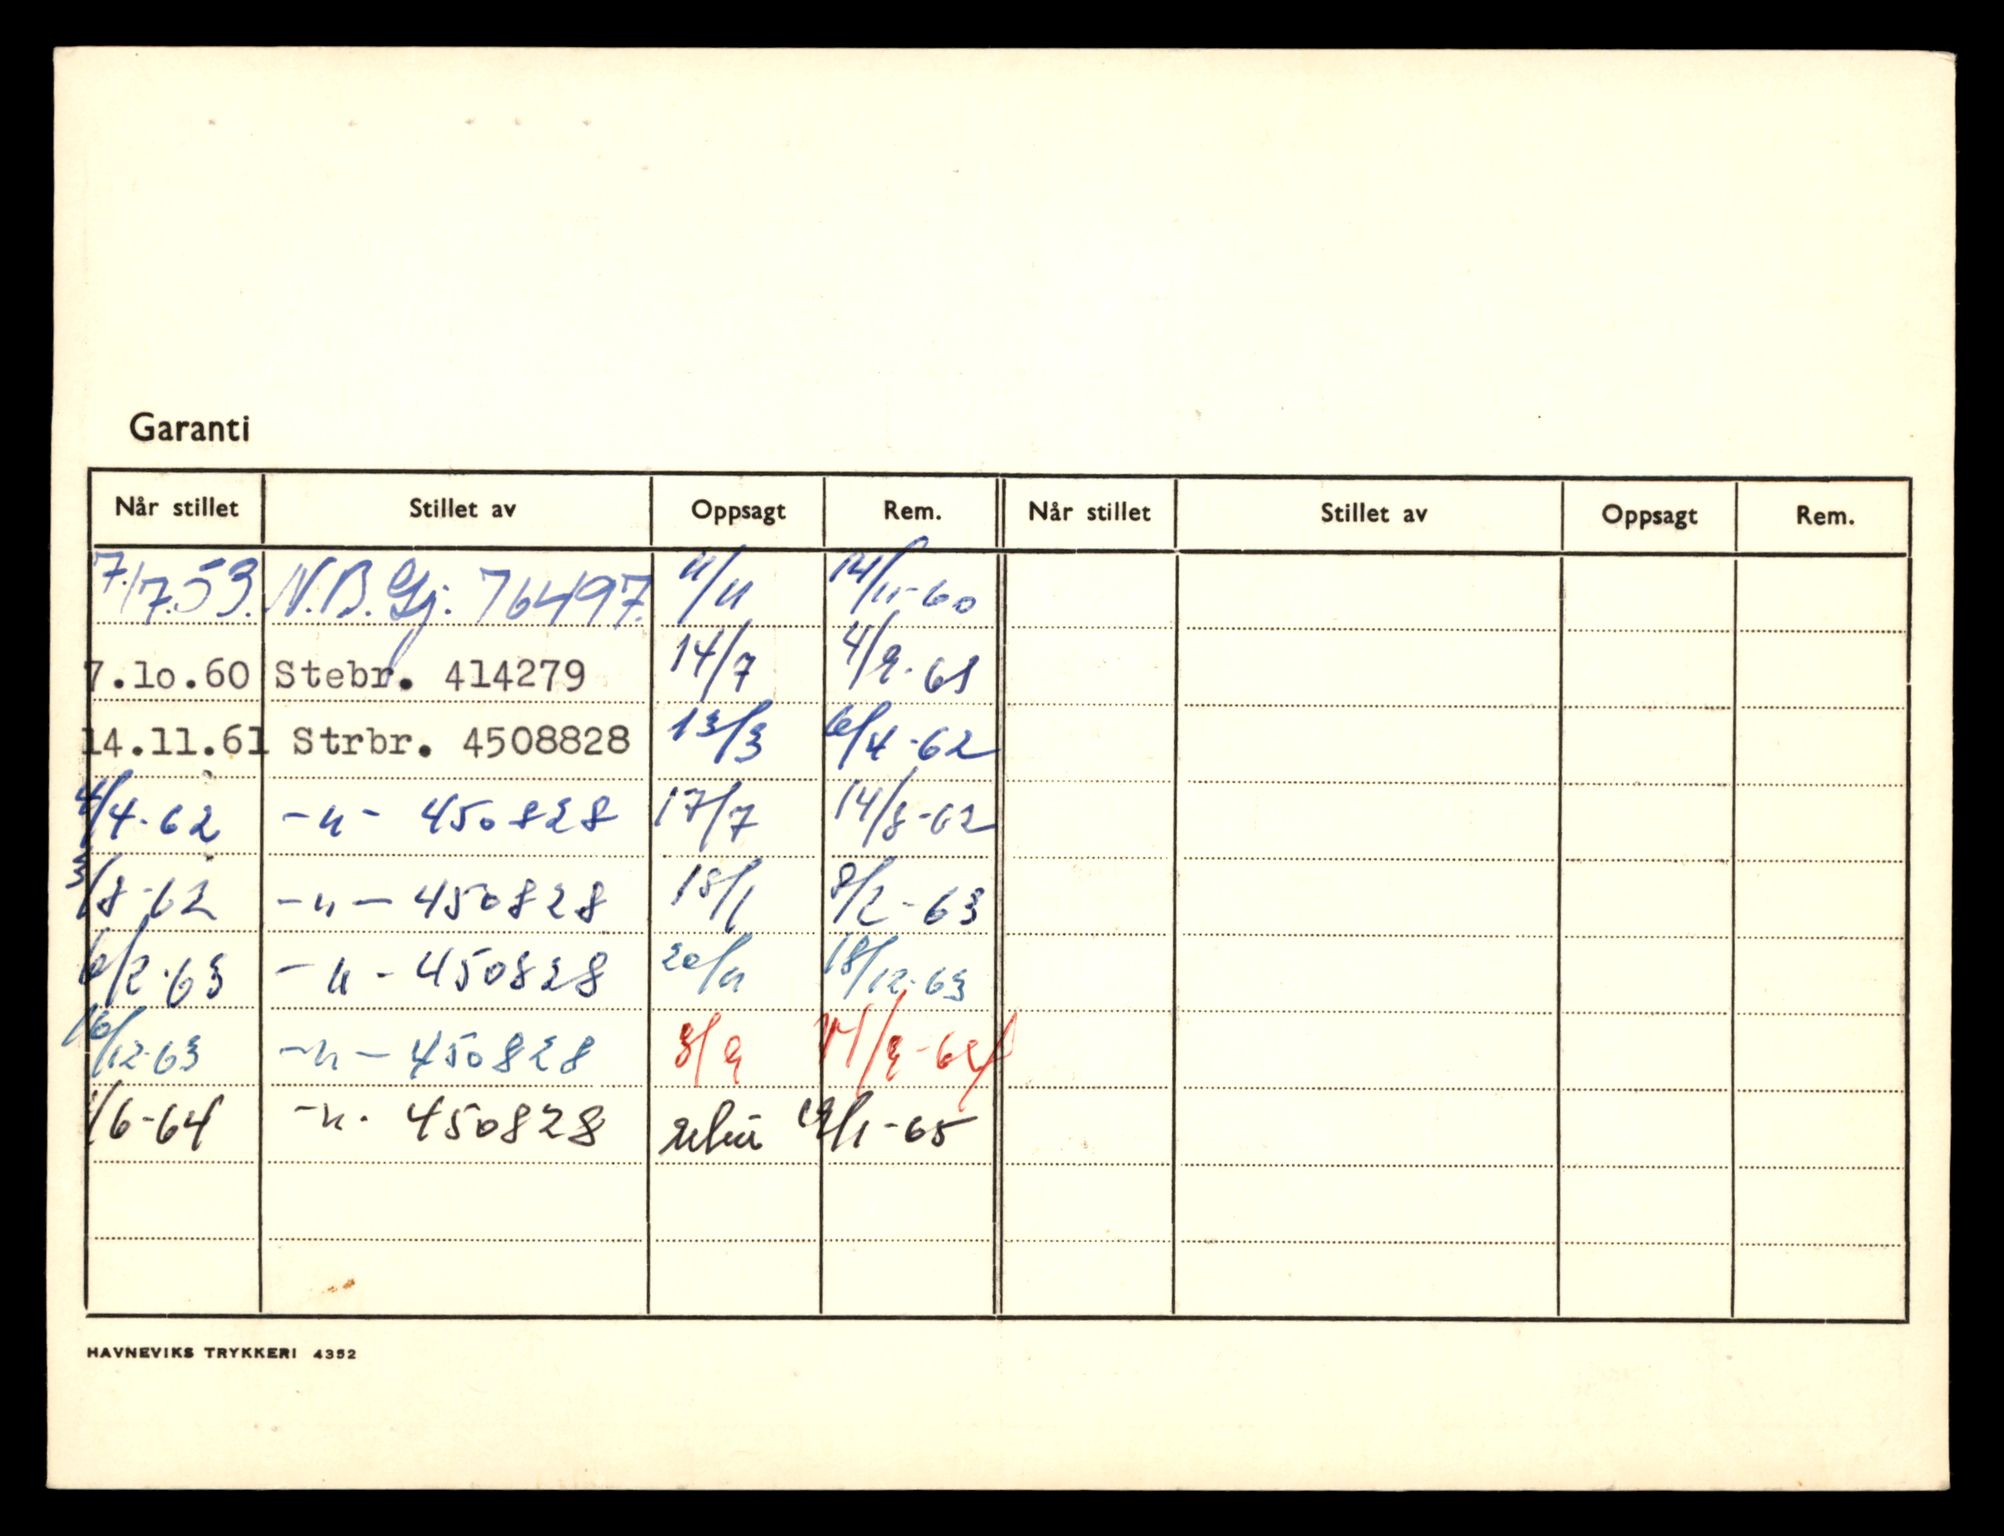 Garanti
Når stillet Stillet av Oppsagt Rem. Når stillet Stillet av Oppsagt Rem.
7/7.53. N.B.Gj. 76497. 11/11 14/11-60
7.10.60 Stebr. 414279 14/7 4/9-61
14.11.61 Strbr. 4508828 13/3 6/4-62
4/4-62 -"- 450828 17/7 14/8-62
3/8-62 -"- 450828 18/1 8/2-63
6/2-63 -"- 450828 20/11 18/12-63
16/12-63 -"- 450828 3/9 17/9-64
1/6-64 -"- 450828 19/1-65
HAVNEVIKS TRYKKERI 4352